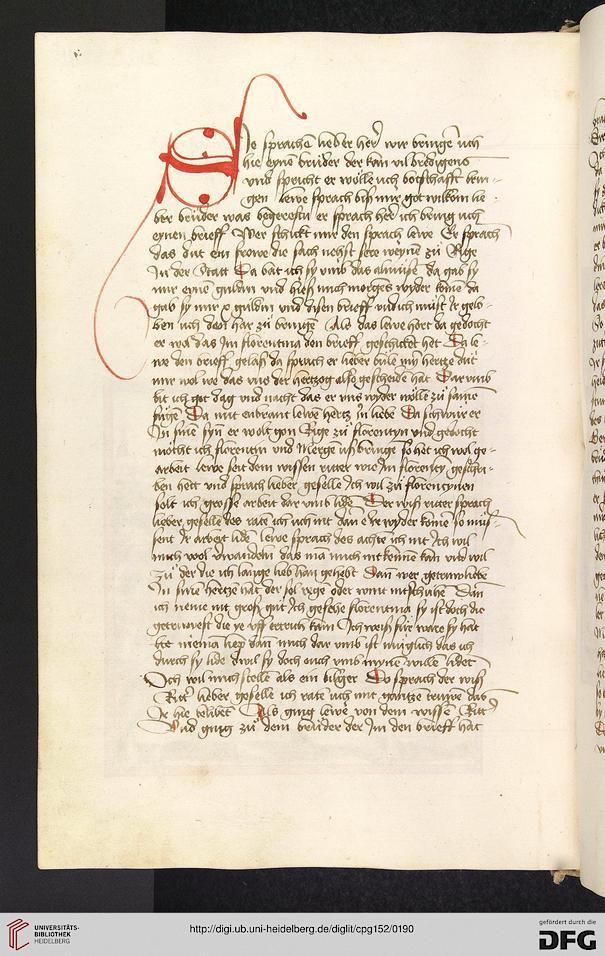 Sie sprachē lieber her wir bringē uch
hie eynen bruder der kan vil bredigens
vnd spricht er wölle uch botschafft brin-
gen lewe sprach bis mir got wilkum lie
ber bruder was begerestu er sprach her ich bring uch
eynen brieff Wer schickt mir den sprach lewe Er sprach
das dut ein frowe die sach nehst sere weynē zü
In der statt Da bat ich sy vmb das almüse da gab sy
mir eynē guldin vnd hieß mich morgēs wyder kome da
gab sy mir x guldin vnd disen brieff
uch den har zü bringē Als das lewe hort da gedocht
er wol das Im florentina den brieff geschicket het Da le
we den brieff gelaß da sprach er lieber mȳ hertze dut
mir wol we das vns der hertzog also gescheidē hat Darvmb
bit ich got dag vnd nacht das er vns wyder wölle zü same
fügē Da mit enbrant lewē hertz in liebe Da schwur er
In sinē syn er wolt gon zü florentyn vnd gedocht
möcht ich florentin vnd vß bringē so het ich wol ge
arbeit lewe seit dem wissen ritter wie Im florentyn geschri-
ben hett vnd sprach lieber geselle Ich wil zü florentynen
solt ich grosse arbeit dar vmb lidē Der wiß ritter sprach
lieber geselle des rate ich uch nit dan e Ir wyder komē so müs
sent Ir arbeit lidē lewe sprach des achte ich nit Ich wil
mich wol verwandeln das mā mich nit kennē kan vnd wil
zü der die ich lange lieb han gehebt Dan wer getruwe liebe
In sime hertzē hat der sol regē oder wint nit schuhē Dan
ich neme nit groß gut Ich gesehe florentina sy ist doch die
getruwest die ye vff ertrich kam Ich weiß für ware sy hat
nieman liep dann mich dar vmb ist müglich das ich
durch sy lide dwil sy doch ouch vmb mynē willē lidet
Ich wil mich stelle als ein bilger Do sprach der wiß
Ritter lieber geselle ich rate uch mit gantze truwe das
Ir hie belibēt Als ging lewe von dem wissē Ritter
Vnd ging zü dem bruder der Im den brieff hat
UNIVERSITÄTS-
BIBLIOTHEK
HEIDELBERG
http://digi.ub.uni-heidelberg.de/diglit/cpg152/0190
gefördert durch die
DFG